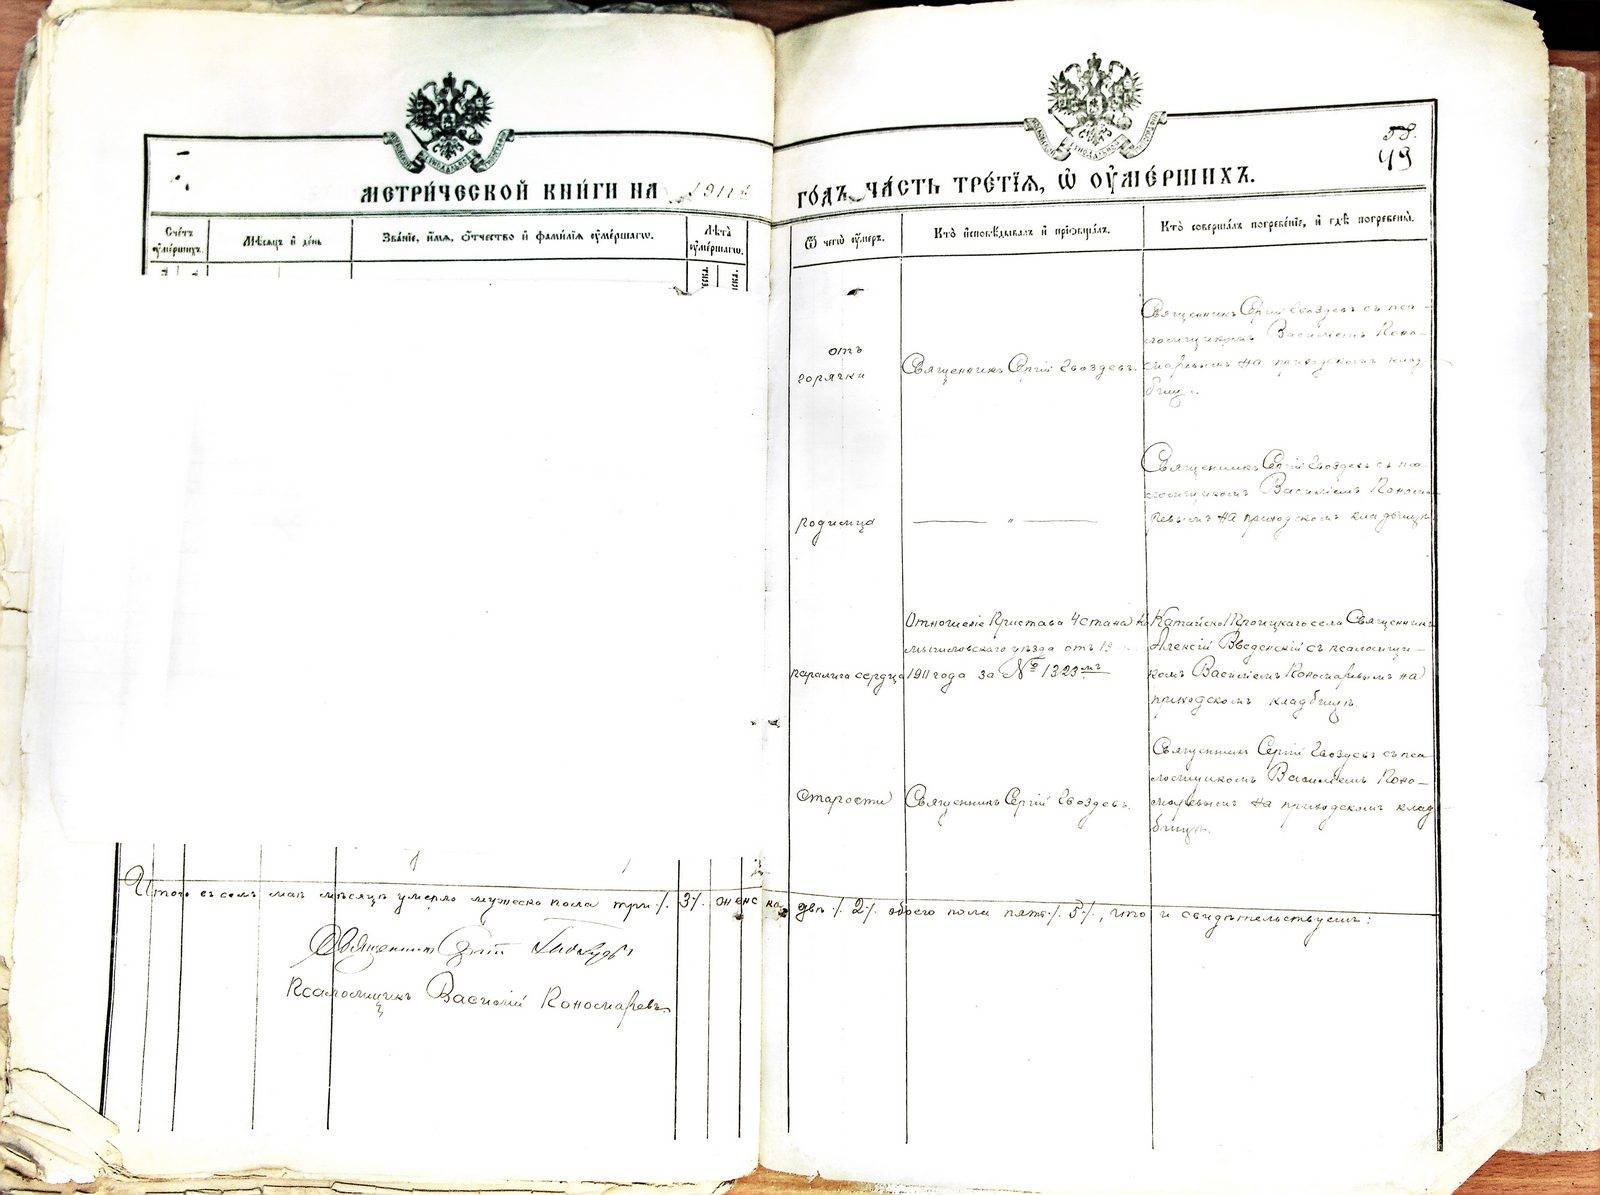 МЕТРИ́ЧЕСКОЙ КНИ́ГИ НА 1911 ГО́ДЪ, ЧА́СТЬ ТРЕ́ТЇЯ, Ѡ ОУ҆МЕ́РШИХЪ.
58.
49
Сче́тъ оу҆ме́ршихъ.
Мѣ́сяцъ и҆ де́нь
Зва́нїе, и҆́мѧ, ѻ҆́тчество и҆ фами́лїѧ оу҆ме́ршагѡ.
Лѣ́та оу҆ме́ршагѡ.
Ѿ чегѡ̀ оу҆́меръ.
Кто̀ и҆сповѣ́дывалъ и҆ прїѻбща́лъ.
Кто̀ соверша́лъ погребе́нїе, и҆ гдѣ̀ погребены̀.
отъ
горячки
Священникъ Сергій Гвоздевъ.
Священникъ Сергій Гвоздевъ съ пса-
ломщикомъ Василіемъ Поно-
маревымъ на приходскомъ клад-
бищѣ.
родимца
— " —
Священникъ Сергій Гвоздевъ съ пса-
ломщикомъ Василіемъ Понома-
ревымъ на приходскомъ кладбищѣ
паралича сердца
Отношеніе Пристава 4 стана Ка-
мышловского уѣзда отъ 19
1911 года за № 1323мъ
Священникъ
Алексій Введенскій съ псаломщи-
комъ Василіемъ Пономаревымъ на
приходскомъ кладбищѣ
Старости
Священникъ Сергій Гвоздевъ.
Священникъ Сергій Гвоздевъ съ пса-
ломщикомъ Василіемъ Поно-
маревымъ на приходскомъ клад-
бищѣ.
Итого въ семъ маѣ мѣсяцѣ умерло мужеска пола три /. 3 /. женска двѣ /. 2 /. обоего пола пять /. 5 /., что и свидѣтельствуемъ:
Священникъ Сергій Гвоздевъ
Псаломщикъ Василій Пономаревъ